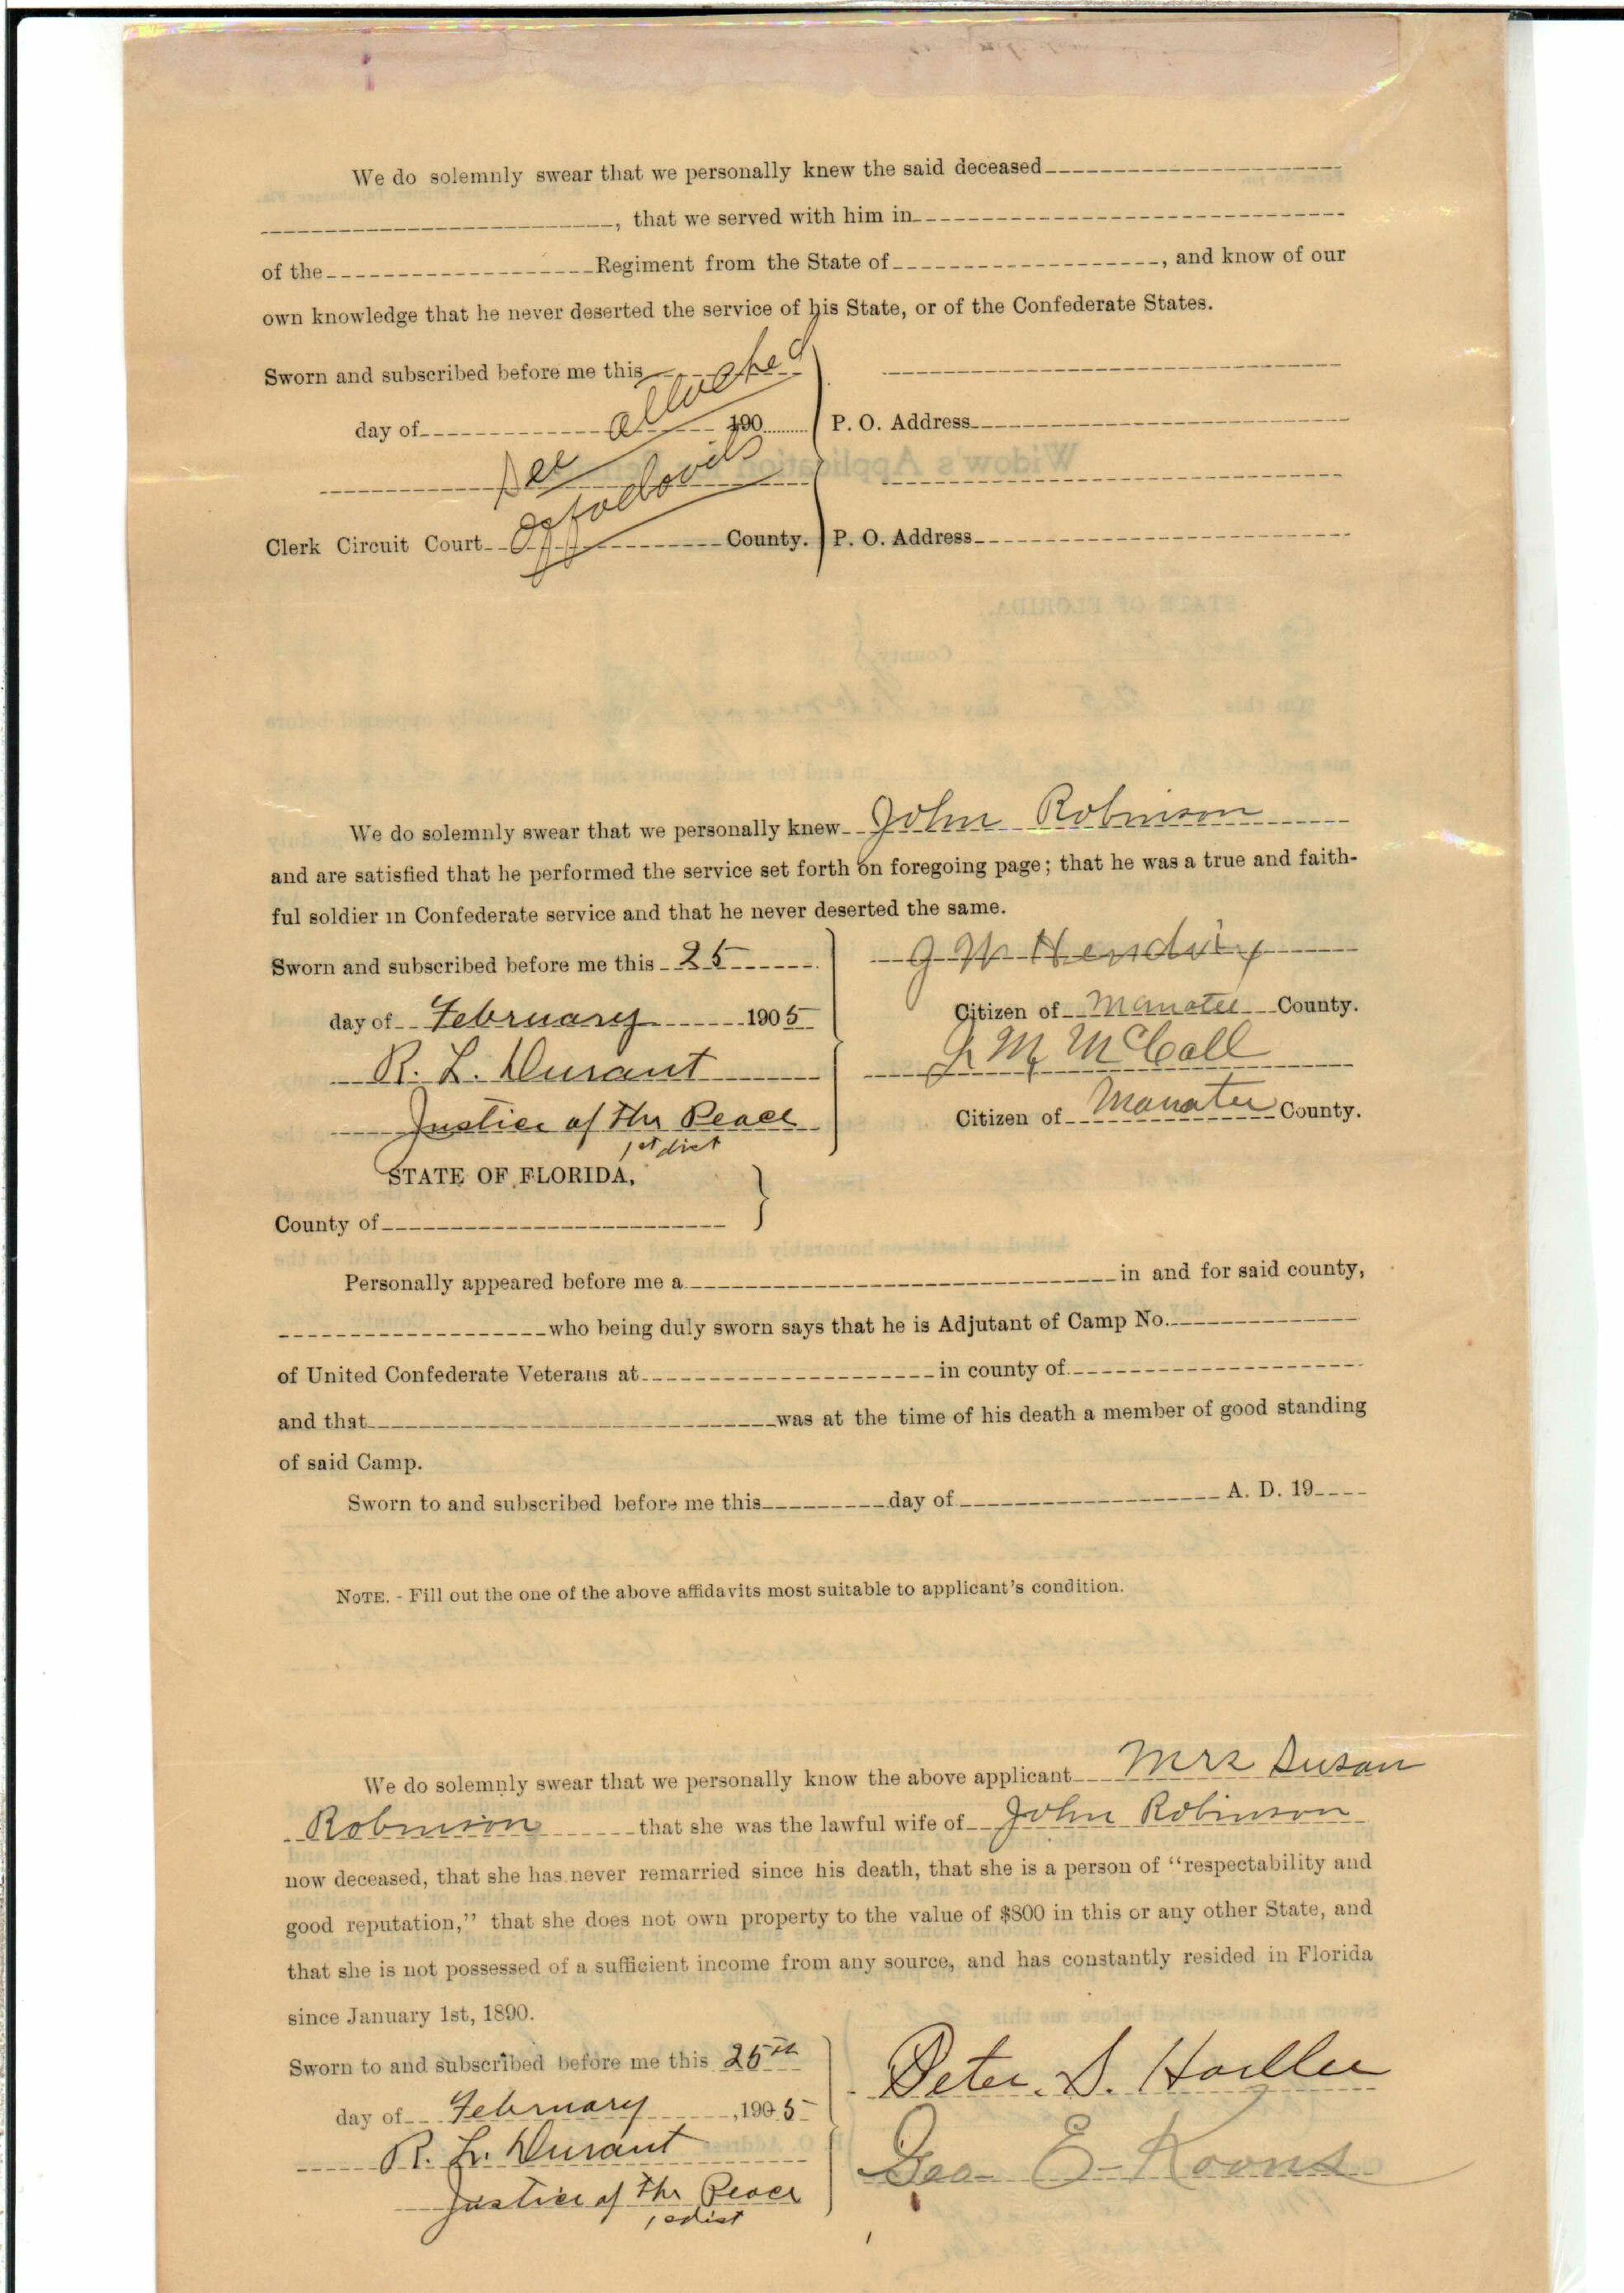 We do solemnly swear that we personally knew the said deceased
, that we served with him in
of the Regiment from the State of , and know of our
own knowledge that he never deserted the service of his State, or of the Confederate States.
Sworn and subscribed before me this attached
day of 190 P. O. Address
See
Clerk Circuit Court County. P. O. Address
We do solemnly swear that we personally knew John Robinson
and are satisfied that he performed the service set forth on foregoing page; that he was a true and faith-
ful soldier in Confederate service and that he never deserted the same.
Sworn and subscribed before me this 25 J M Hendry
day of February 1905 Citizen of Manatee County.
R. L. Durant M McCall
Justice of the Peace Citizen of Manatee County.
1st dist
STATE OF FLORIDA,
County of
Personally appeared before me a in and for said county,
who being duly sworn says that he is Adjutant of Camp No.
of United Confederate Veterans at in county of
and that was at the time of his death a member of good standing
of said Camp.
Sworn to and subscribed before me this day of A. D. 19
NOTE. - Fill out the one of the above affidavits most suitable to applicant's condition.
We do solemnly swear that we personally know the above applicant Mrs Susan
Robinson that she was the lawful wife of John Robinson
now deceased, that she has never remarried since his death, that she is a person of "respectability and
good reputation," that she does not own property to the value of $800 in this or any other State, and
that she is not possessed of a sufficient income from any source, and has constantly resided in Florida
since January 1st, 1890.
Sworn to and subscribed before me this 25th Peter. S.
day of February , 1905
R. L. Durant Geo E Koons
Justice of the Peace
1 dist